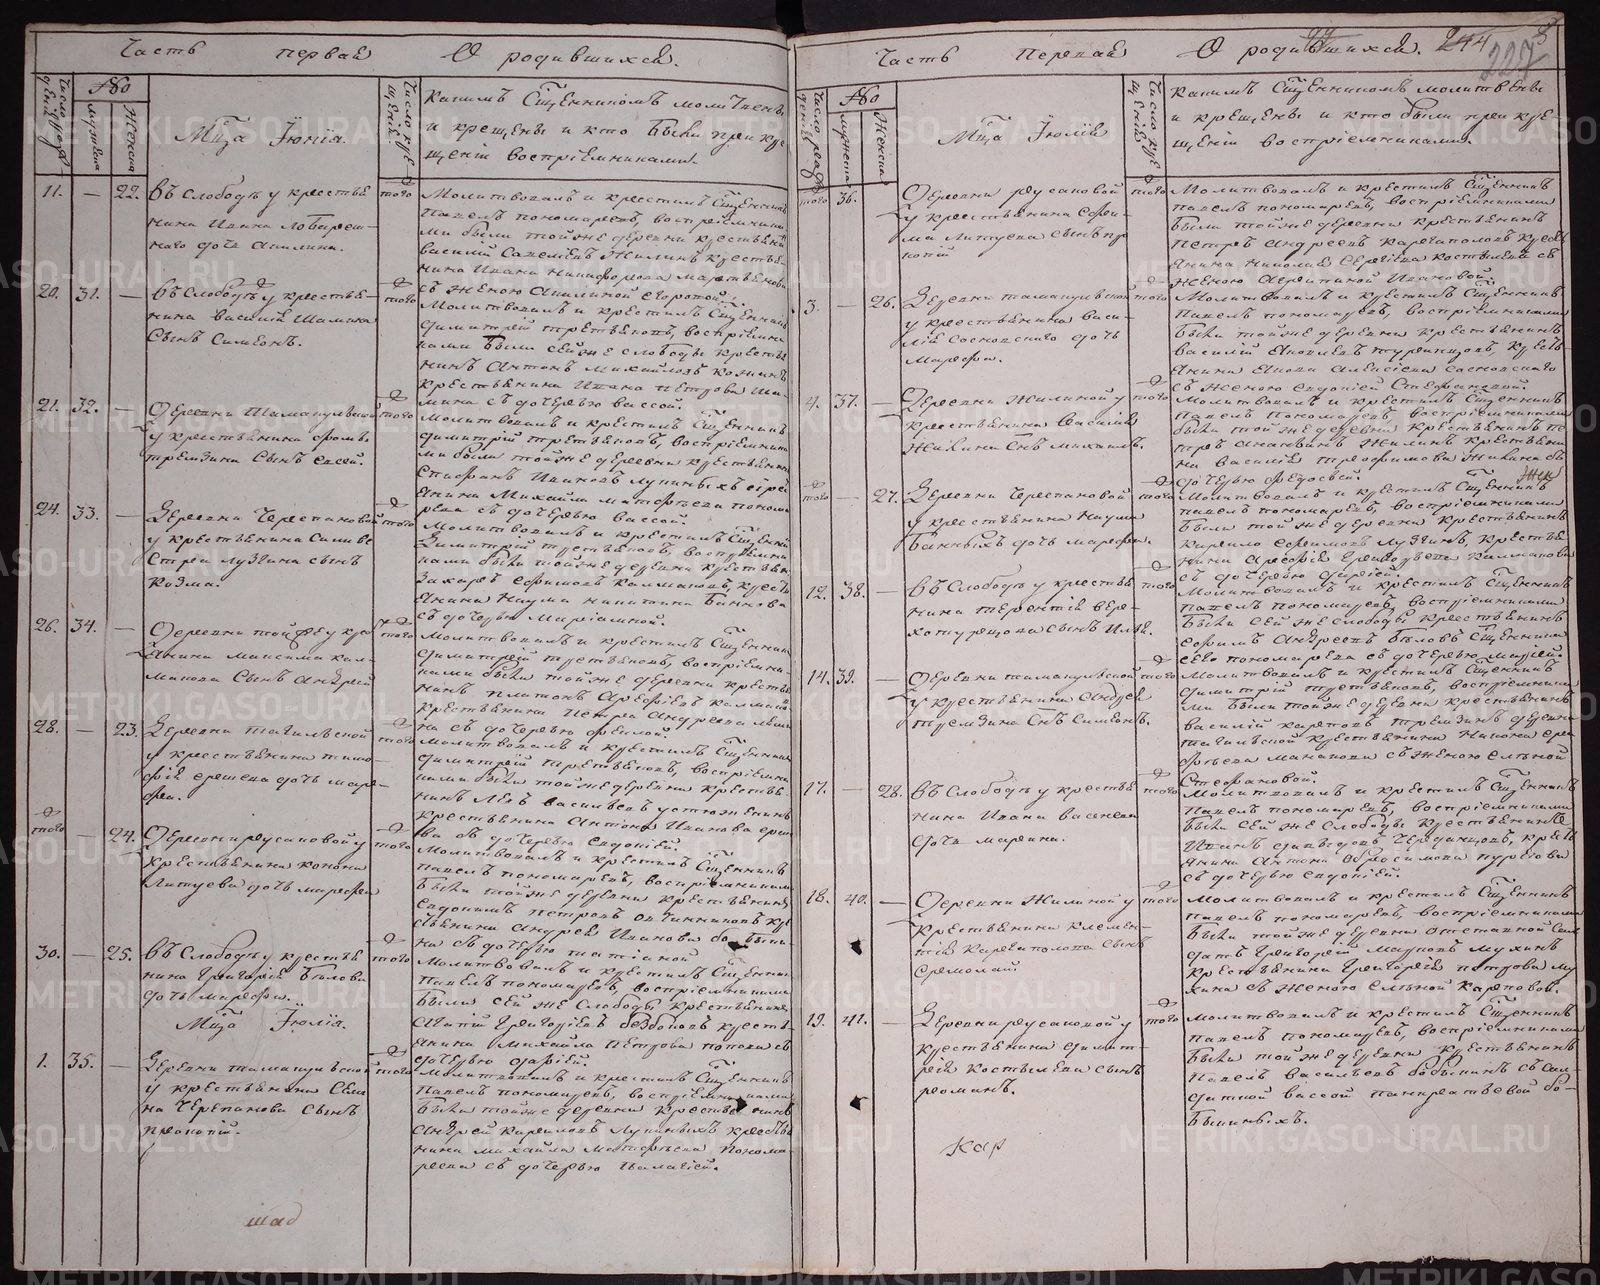 Часть первая О родившихся.
Число рождения
№
мужеска
женска
Мца Июния.
Число крещения
Какимъ Сщенникомъ молитвены
и крещены и кто были при кре
щении восприемниками.
11. — 22. въ Слободе у крестья
нина Ивана
дочь Акилина.
того
Молитвовалъ и крестилъ Сщенникъ
Павелъ пономаревъ, восприемника
ми были тойже деревни крестьянинъ
василий Савельевъ Жилинъ крестья
нина Ивана Никифорова
съ женою Акилиной
20. 31. — въ Слободе у крестья
нина василия Шамина
Сынъ Симеонъ.
того
Молитвовалъ и крестилъ Сщенникъ
Димитрий третьяковъ, восприемни
ками были сей же слободы крестья
нинъ Антонъ Михайловъ
крестьянина Ивана петрова Ша
мина съ дочерью вассой.
21. 32. — Деревни
у крестьянина фрола
тремзина Сынъ елсей.
того
Молитвовалъ и крестилъ Сщенникъ
Димитрий третьяковъ, восприемника
ми были тойже деревни крестьянинъ
Стефанъ Ивановъ Лупиныхъ
янина Михаила матфеева понома
рева съ дочерью вассой.
24. 33. — Деревни Черепановой
у крестьянина Силиве
стра лузгина сынъ
козма.
того
Молитвовалъ и крестилъ Сщенникъ
Димитрий третьяковъ, восприемни
ками были тойже деревни крестьян
Захаръ ефимовъ калмаковъ, кресть
янина Наума никитина Баннова
съ дочерью Мариамной.
26. 34. — Деревни той же у крес
янина максима кал
макова Сынъ Андрей
того
Молитвовалъ и крестилъ Сщенникъ
Димитрий третьяковъ, восприемни
ками были тойже деревни крестья
нинъ платонъ Арефиевъ калмаков
крестьянина петра Андреева
на съ дочерью феклой.
28. — 23. Деревни тагильской
у крестьянина тимо
фея ершева дочь мар
фа.
того
Молитвовалъ и крестилъ Сщенникъ
Димитрий третьяковъ, восприемни
ками были тойже деревни крестья
нинъ Левъ васильевъ устюжанинъ
крестьянина Антона Иванова ерше
ва съ дочерью евдокией.
того — 24. Деревни русаковой у
крестьянина конона
Литуева дочь марфа
того
Молитвовалъ и крестилъ Сщенникъ
павелъ пономаревъ, восприемниками
были тойже деревни крестьянинъ
евдокимъ петровъ овчинниковъ кре
стьянина Андрея Иванова бабыки
на съ дочерью татианой
30. — 25. въ Слободе у крестья
нина Григория белова
дочь марфа.
того
Молитвовалъ и крестилъ Сщенникъ
Павелъ пономаревъ, восприемниками
были сей же Слободы крестьянинъ
Григориевъ крестья
янина Михаила петрова попова съ
дочерью дарией.
Мца Июлиа.
1. 35. — Деревни тамакульской
у крестьянина
на Черепанова сынъ
прокопий.
того
Молитвовалъ и крестилъ Сщенникъ
Павелъ пономаревъ, восприемниками
были тойже деревни крестьянинъ
Андрей кириловъ Лупиныхъ крестья
нина михайла Матфеева понома
рева съ дочерью палагией.
шад
Часть Первая О родившихся.
244
227
Число рождения
№
мужеска
Женска
Мца Июлиа
Число крещения
Какимъ Сщенникомъ молитвены
и крещены и кто были при кре
щении восприемниками.
того 36. Деревни русаковой
у крестьянина ефи
ма Литуева сынъ про
копий
того
Молитвовалъ и крестилъ Сщенникъ
павелъ пономаревъ, восприемниками
были тойже деревни крестьянинъ
петръ андреевъ карпаполовъ кресть
янина николая Сергиева костылева съ
женою агрипиной Ивановой.
3. — 26. Деревни тамакульской
у крестьянина васи
лия Сосновскаго дочь
Марфа.
того
Молитвовалъ и крестилъ Сщенникъ
Павелъ пономаревъ, восприемниками
были тойже деревни крестьянинъ
василий Яковлевъ туринцовъ, кресть
янина Якова Алексиева сосновскаго
съ женою евдокией Стефановой.
4. 37. — Деревни Жилиной у
крестьянина василия
Жилина Снъ михаилъ.
того
Молитвовалъ и крестилъ Сщенникъ
павелъ пономаревъ восприемниками
были той же деревни крестьянинъ пе
тръ Жилинъ крестьяни
на василия трофимова Жилина съ
дочерью федосьей.
того — 27. Деревни Черепановой
у крестьянина Наума
Банныхъ дочь марфа.
того
Молитвовалъ и крестилъ Сщенникъ
павелъ пономаревъ, восприемниками
были той же деревни крестьянинъ
кирило ефимовъ Лузгинъ, крестья
нина Арефия Григорьева калмакова
съ дочерью
12. 38. — въ Слободе у крестья
нина терентия вер
хотурцова сынъ Илья.
того
Молитвовалъ и крестилъ Сщенникъ
павелъ пономаревъ, восприемниками
были сей же слободы крестьянинъ
ефимъ Андреевъ беловъ Сщенника
сего пономарева съ дочерью марией.
14. 39. — Деревни тамакульской
у крестьянина Андрея
тремзина Снъ Симеонъ.
того
Молитвовалъ и крестилъ Сщенникъ
Димитрий третьяковъ, восприемника
ми были тойже деревни крестьянинъ
василий карповъ тремзинъ деревни
тагильской крестьянина
съ женою еленой
Стефановой.
17. — 28. въ Слободе у крестья
нина Ивана васенева
дочь марина.
того
Молитвовалъ и крестилъ Сщенникъ
павелъ пономаревъ, восприемниками
были сей же Слободы крестьянинъ
Иванъ давыдовъ Черданцовъ, кресть
янина Антона
съ дочерью евдокией.
18. 40. — Деревни Жилиной у
крестьянина климен
тия карпаполова сынъ
ермолай
того
Молитвовалъ и крестилъ Сщенникъ
павелъ пономаревъ, восприемниками
были тойже деревни отставной сол
датъ Григорей Марковъ мухинъ
крестьянина Григорья петрова му
хина съ женою еленой карповой.
19. 41. — Деревни русаковой у
крестьянина Димит
рия костылева сынъ
романъ.
того
Молитвовалъ и крестилъ Сщенникъ
павелъ пономаревъ, восприемниками
были той же деревни крестьянинъ
павелъ васильевъ бабыкинъ съ сол
даткой вассой панкратьевой ба
быкиныхъ.
кар